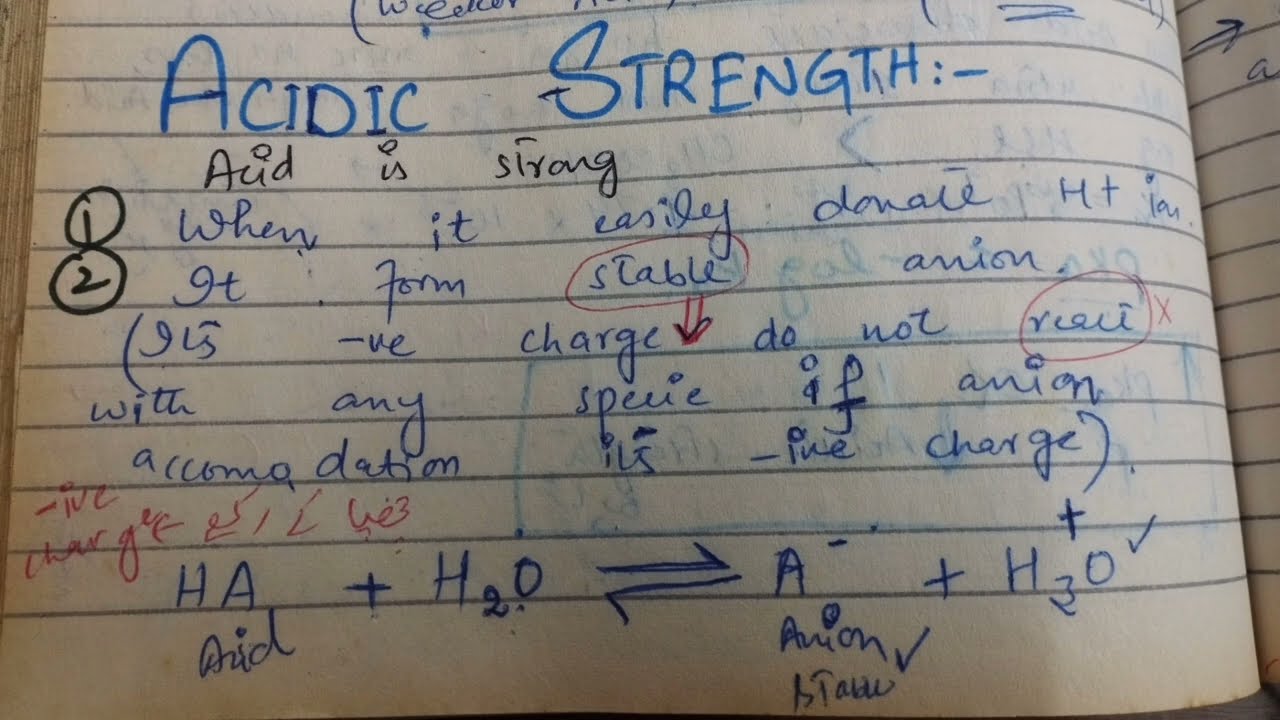 (Weaker
ACIDIC STRENGTH:-
Acid is strong
① When it easily donate H+ ion.
② It form stable anion.
(Its -ve charge do not react x
with any specie if anion
accomodation its -ive charge).
-ive
charge
HA + H₂O ⇌ A⁻ + H₃O⁺ ✓
Acid Anion ✓
stable